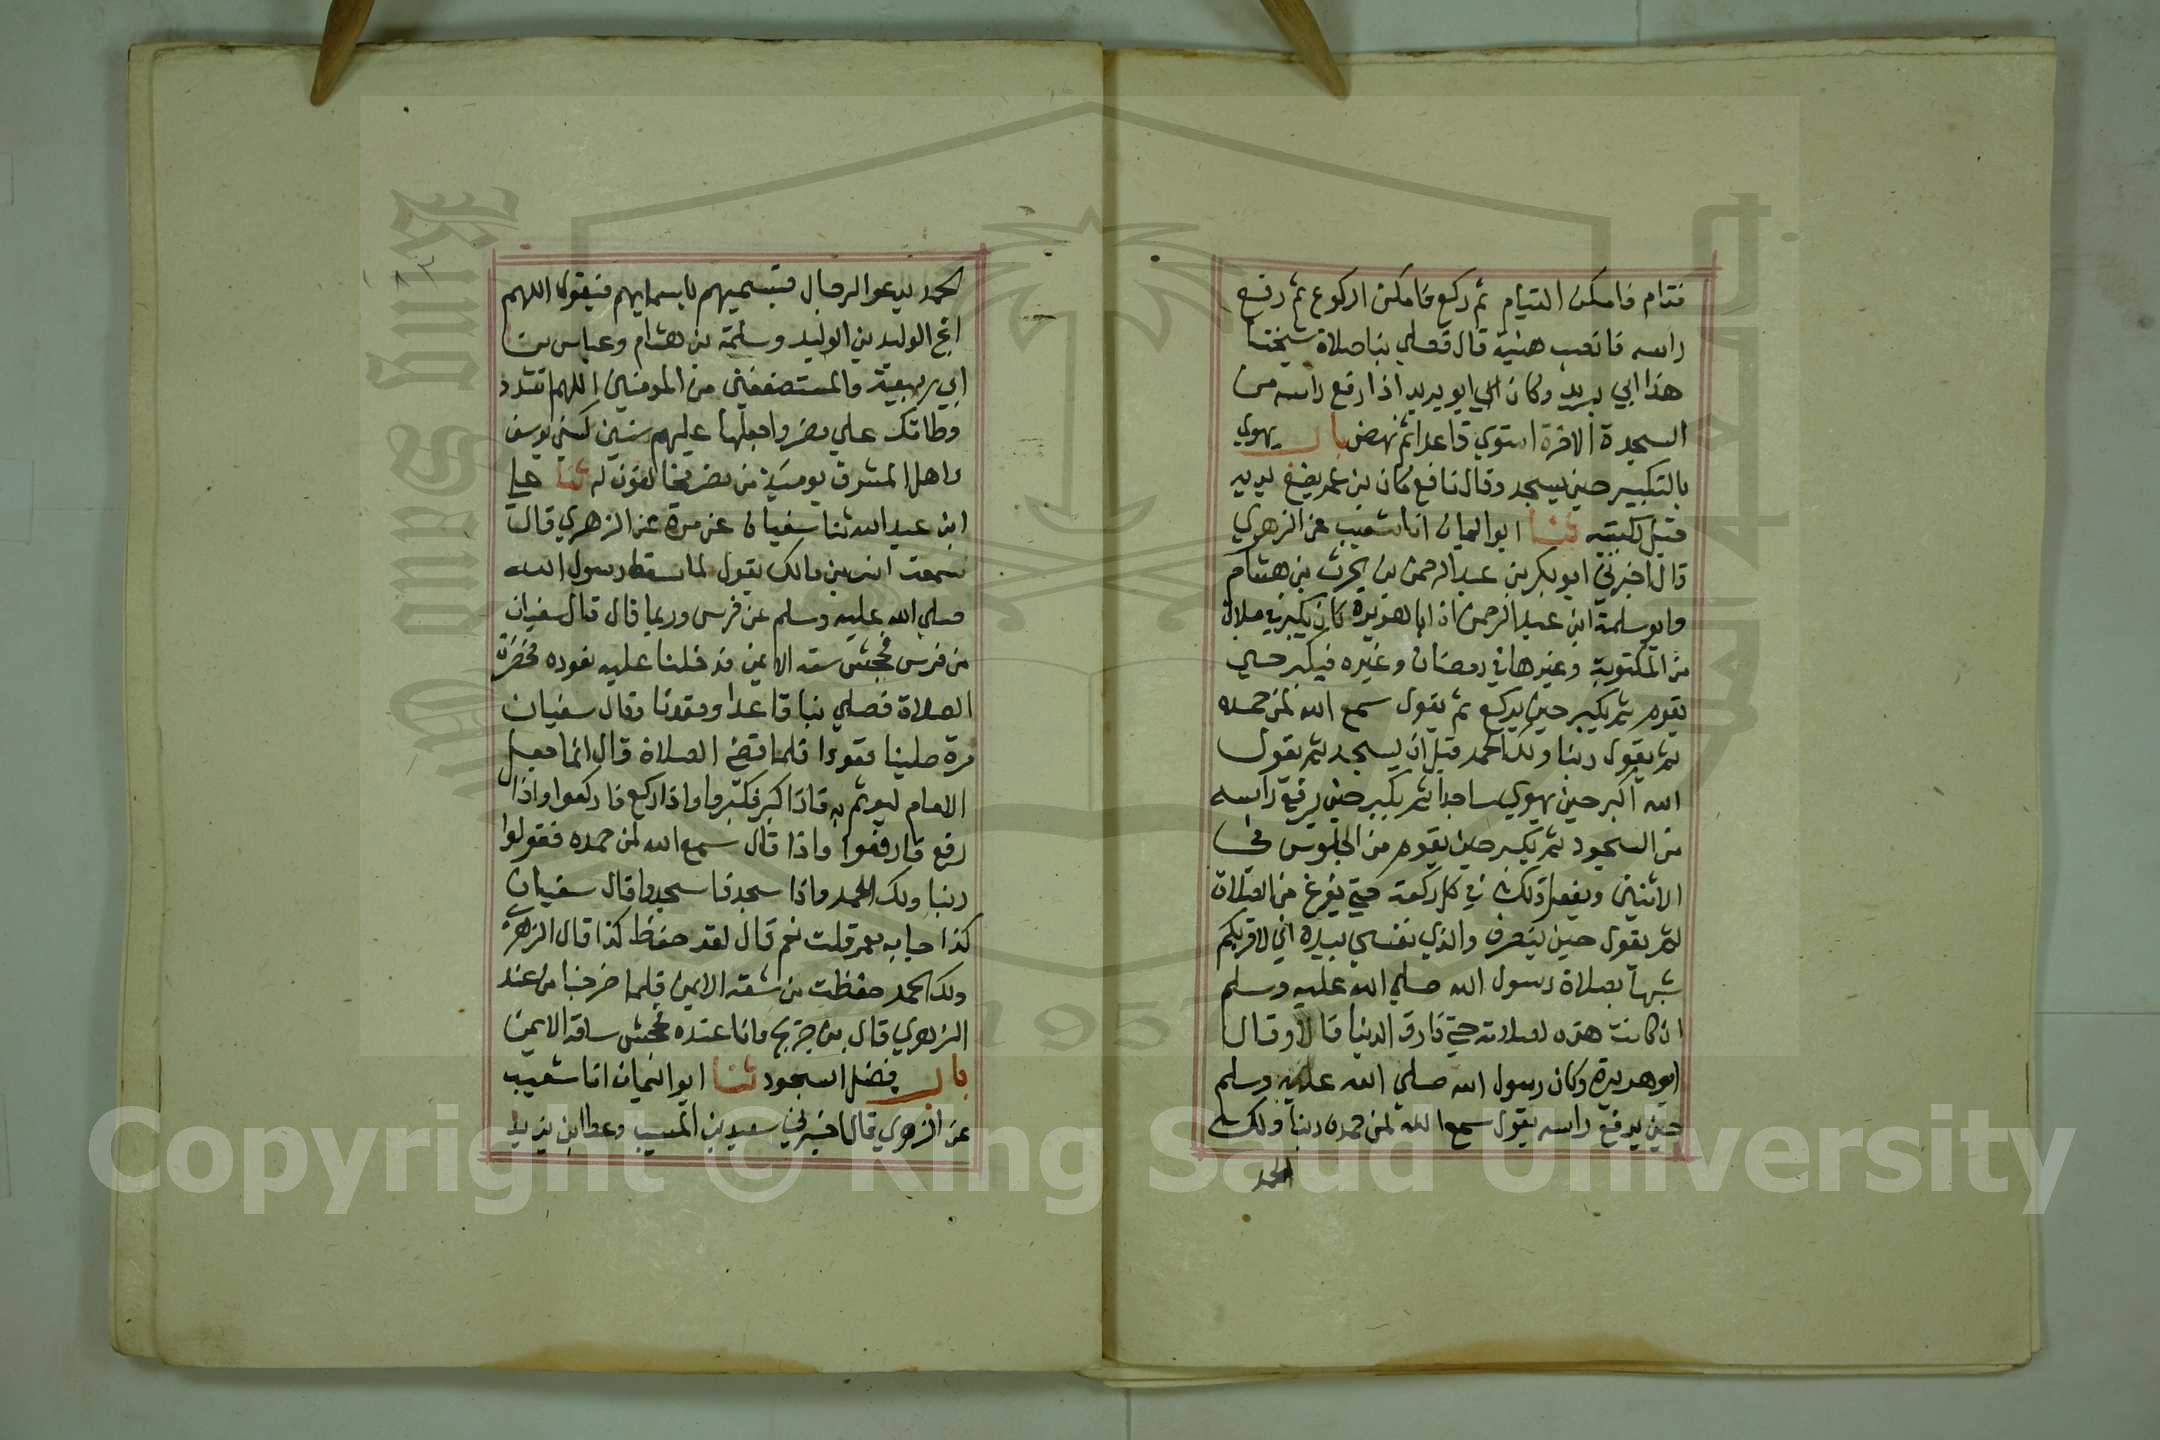 فقام فامكن القيام ثم ركع فامكن الركوع ثم رفع
راسه فانصب هنية قال فصلي بنا صلاة شيخنا
هذا ابي بريد وكان ابو يريد اذا رفع راسه من
السجدة الاخرة استوي قاعدا ثم نهض باب يهوي
بالتكبير حين يسجد وقال نافع كان بن عمر يضع يديه
قبل ركبتيه ثنا ابو اليمان انا شعيب عن الزهري
قال اخبرني ابو بكر بن عبد الرحمن بن الحرث بن هشام
وابو سلمة ابن عبد الرحمن ان ابا هريرة كان يكبر في صلاة
من المكتوبة وغيرها في رمضان وغيره فيكبر حين
يقوم ثم يكبر حين يركع ثم يقول سمع الله لمن حمده
ثم يقول ربنا ولك الحمد قبل ان يسجد ثم يقول
الله اكبر حين يهوي ساجدا ثم يكبر حين يرفع راسه
من السجود ثم يكبر حين يقوم من الجلوس في
الاثنين ويفعل ذلك في كل ركعة حتي يفرغ من الصلاة
ثم يقول حين ينصرف والذي نفسي بيده اني لاقربكم
شبها بصلاة رسول الله صلي الله عليه وسلم
ان كانت هذه لصلاته حتي فارق الدنيا قالا وقال
ابو هريرة وكان رسول الله صلي الله عليه وسلم
حين يرفع راسه يقول سمع الله لمن حمده ربنا ولك
الحمد
الحمد يدعو الرجال فيسميهم باسمايهم فيقول اللهم
انج الوليد بن الوليد وسلمة بن هشام وعباس بن
ابي ربيعة والمستضعفين من المومنين اللهم اشدد
وطاتك علي مضر واجعلها عليهم سنين كسني يوسف
واهل المشرق يوميذ من مضر مخالفون له ثنا علي
ابن عبد الله ثنا سفيان عن مرة عن الزهري قال
سمعت انس بن مالك يقول لما سقط رسول الله
صلي الله عليه وسلم عن فرس وربما قال قال سفيان
من فرس فجحش شقه الايمن فدخلنا عليه نعوده فحضرت
الصلاة فصلي بنا قاعدا وقعدنا وقال سفيان
مرة صلينا قعودا فلما قضي الصلاة قال انما جعل
الامام ليوتم به فاذا كبر فكبروا واذا ركع فاركعوا واذا
رفع فارفعوا واذا قال سمع الله لمن حمده فقولوا
ربنا ولك الحمد واذا سجد فاسجدوا قال سفيان
كذا جا به معمر قلت نعم قال لقد حفظ كذا قال الزهري
ولك الحمد حفظت من شقه الايمن فلما خرجنا من عند
الزهري قال بن جريج وانا عنده فجحش ساقه الايمن
باب فضل السجود ثنا ابو اليمان انا شعيب
عن الزهري قال اخبرني سعيد بن المسيب وعطا ابن يزيد
Copyright © King Saud University
King Saud University
1957